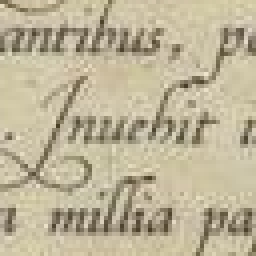 antibus, p
. Inuehit
millia pa